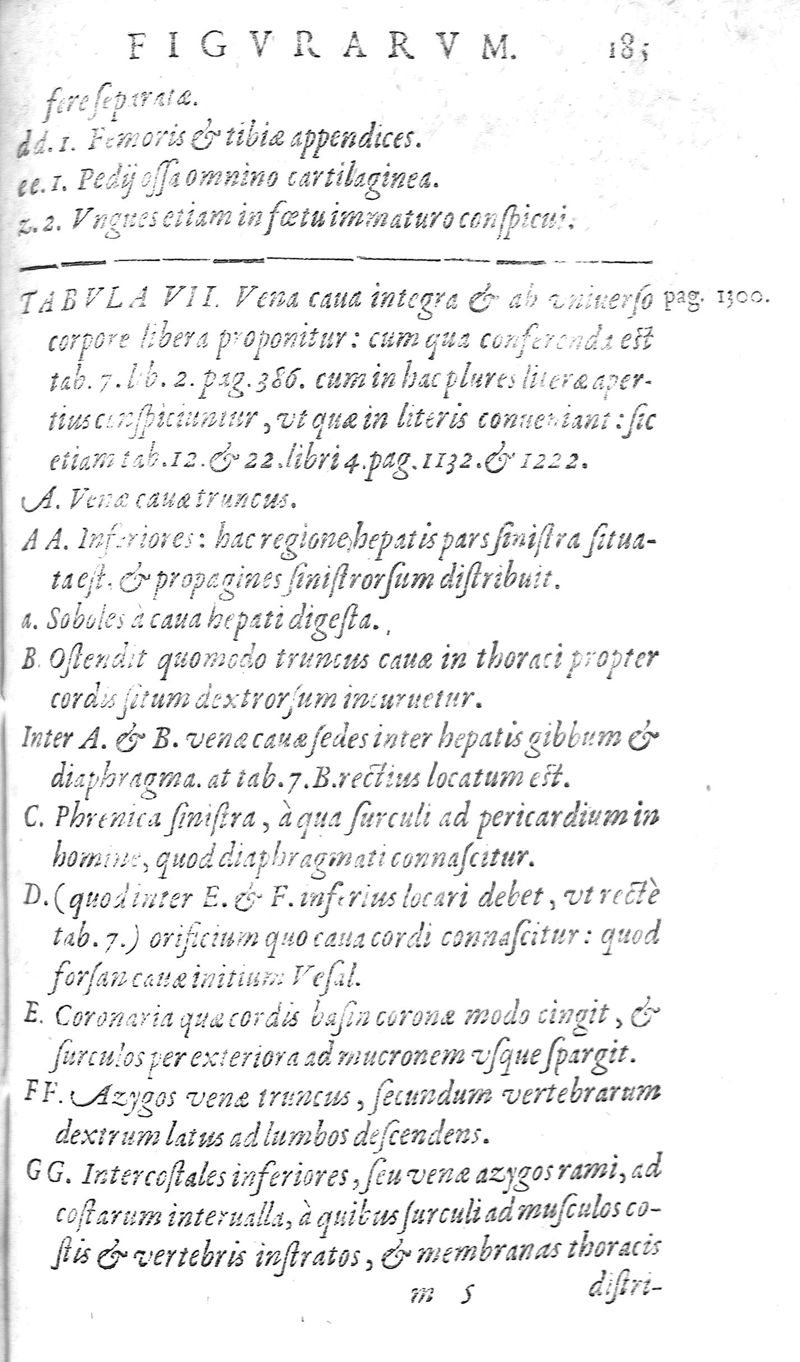 FIGVRARVM. 185
fere ſeparatæ.
dd. 1. Femoris & tibiæ appendices.
ee. 1. Pedij oſſa omnino cartilaginea.
z. 2. Vngues etiam in fœtu immaturo conſpicui.
TABVLA VII. Vena caua integra & ab vniuerſo pag. 1300.
corpore libera proponitur: cum qua conferenda est
tab. 7. lib. 2. pag. 386. cum in hac plures literæ aper-
tius conſpiciuntur, vt quæ in literis conueniant: ſic
etiam tab. 12. & 22. libri 4. pag. 1132. & 1222.
A. Venæ cauæ truncus.
AA. Inferiores: hac regione hepatis pars ſiniſtra ſitua-
ta eſt, & propagines ſiniſtrorſum diſtribuit.
a. Soboles à caua hepati digeſta.
B. Oſtendit quomodo truncus cauæ in thoraci propter
cordis ſitum dextrorſum incuruetur.
Inter A. & B. venæ cauæ ſedes inter hepatis gibbum &
diaphragma. at tab. 7. B. rectius locatum eſt.
C. Phrenica ſiniſtra, à qua ſurculi ad pericardium in
homine, quod diaphragmati connaſcitur.
D. (quod inter E. & F. inferius locari debet, vt rectè
tab. 7.) orificium quo caua cordi connaſcitur: quod
forſan cauæ initium Veſal.
E. Coronaria quæ cordis baſin coronæ modo cingit, &
ſurculos per exteriora ad mucronem vſque ſpargit.
FF. Azygos venæ truncus, ſecundum vertebrarum
dextrum latus ad lumbos deſcendens.
GG. Intercoſtales inferiores, ſeu venæ azygos rami, ad
coſtarum interualla, à quibus ſurculi ad muſculos co-
ſtis & vertebris inſtratos, & membranas thoracis
m 5 diſtri-